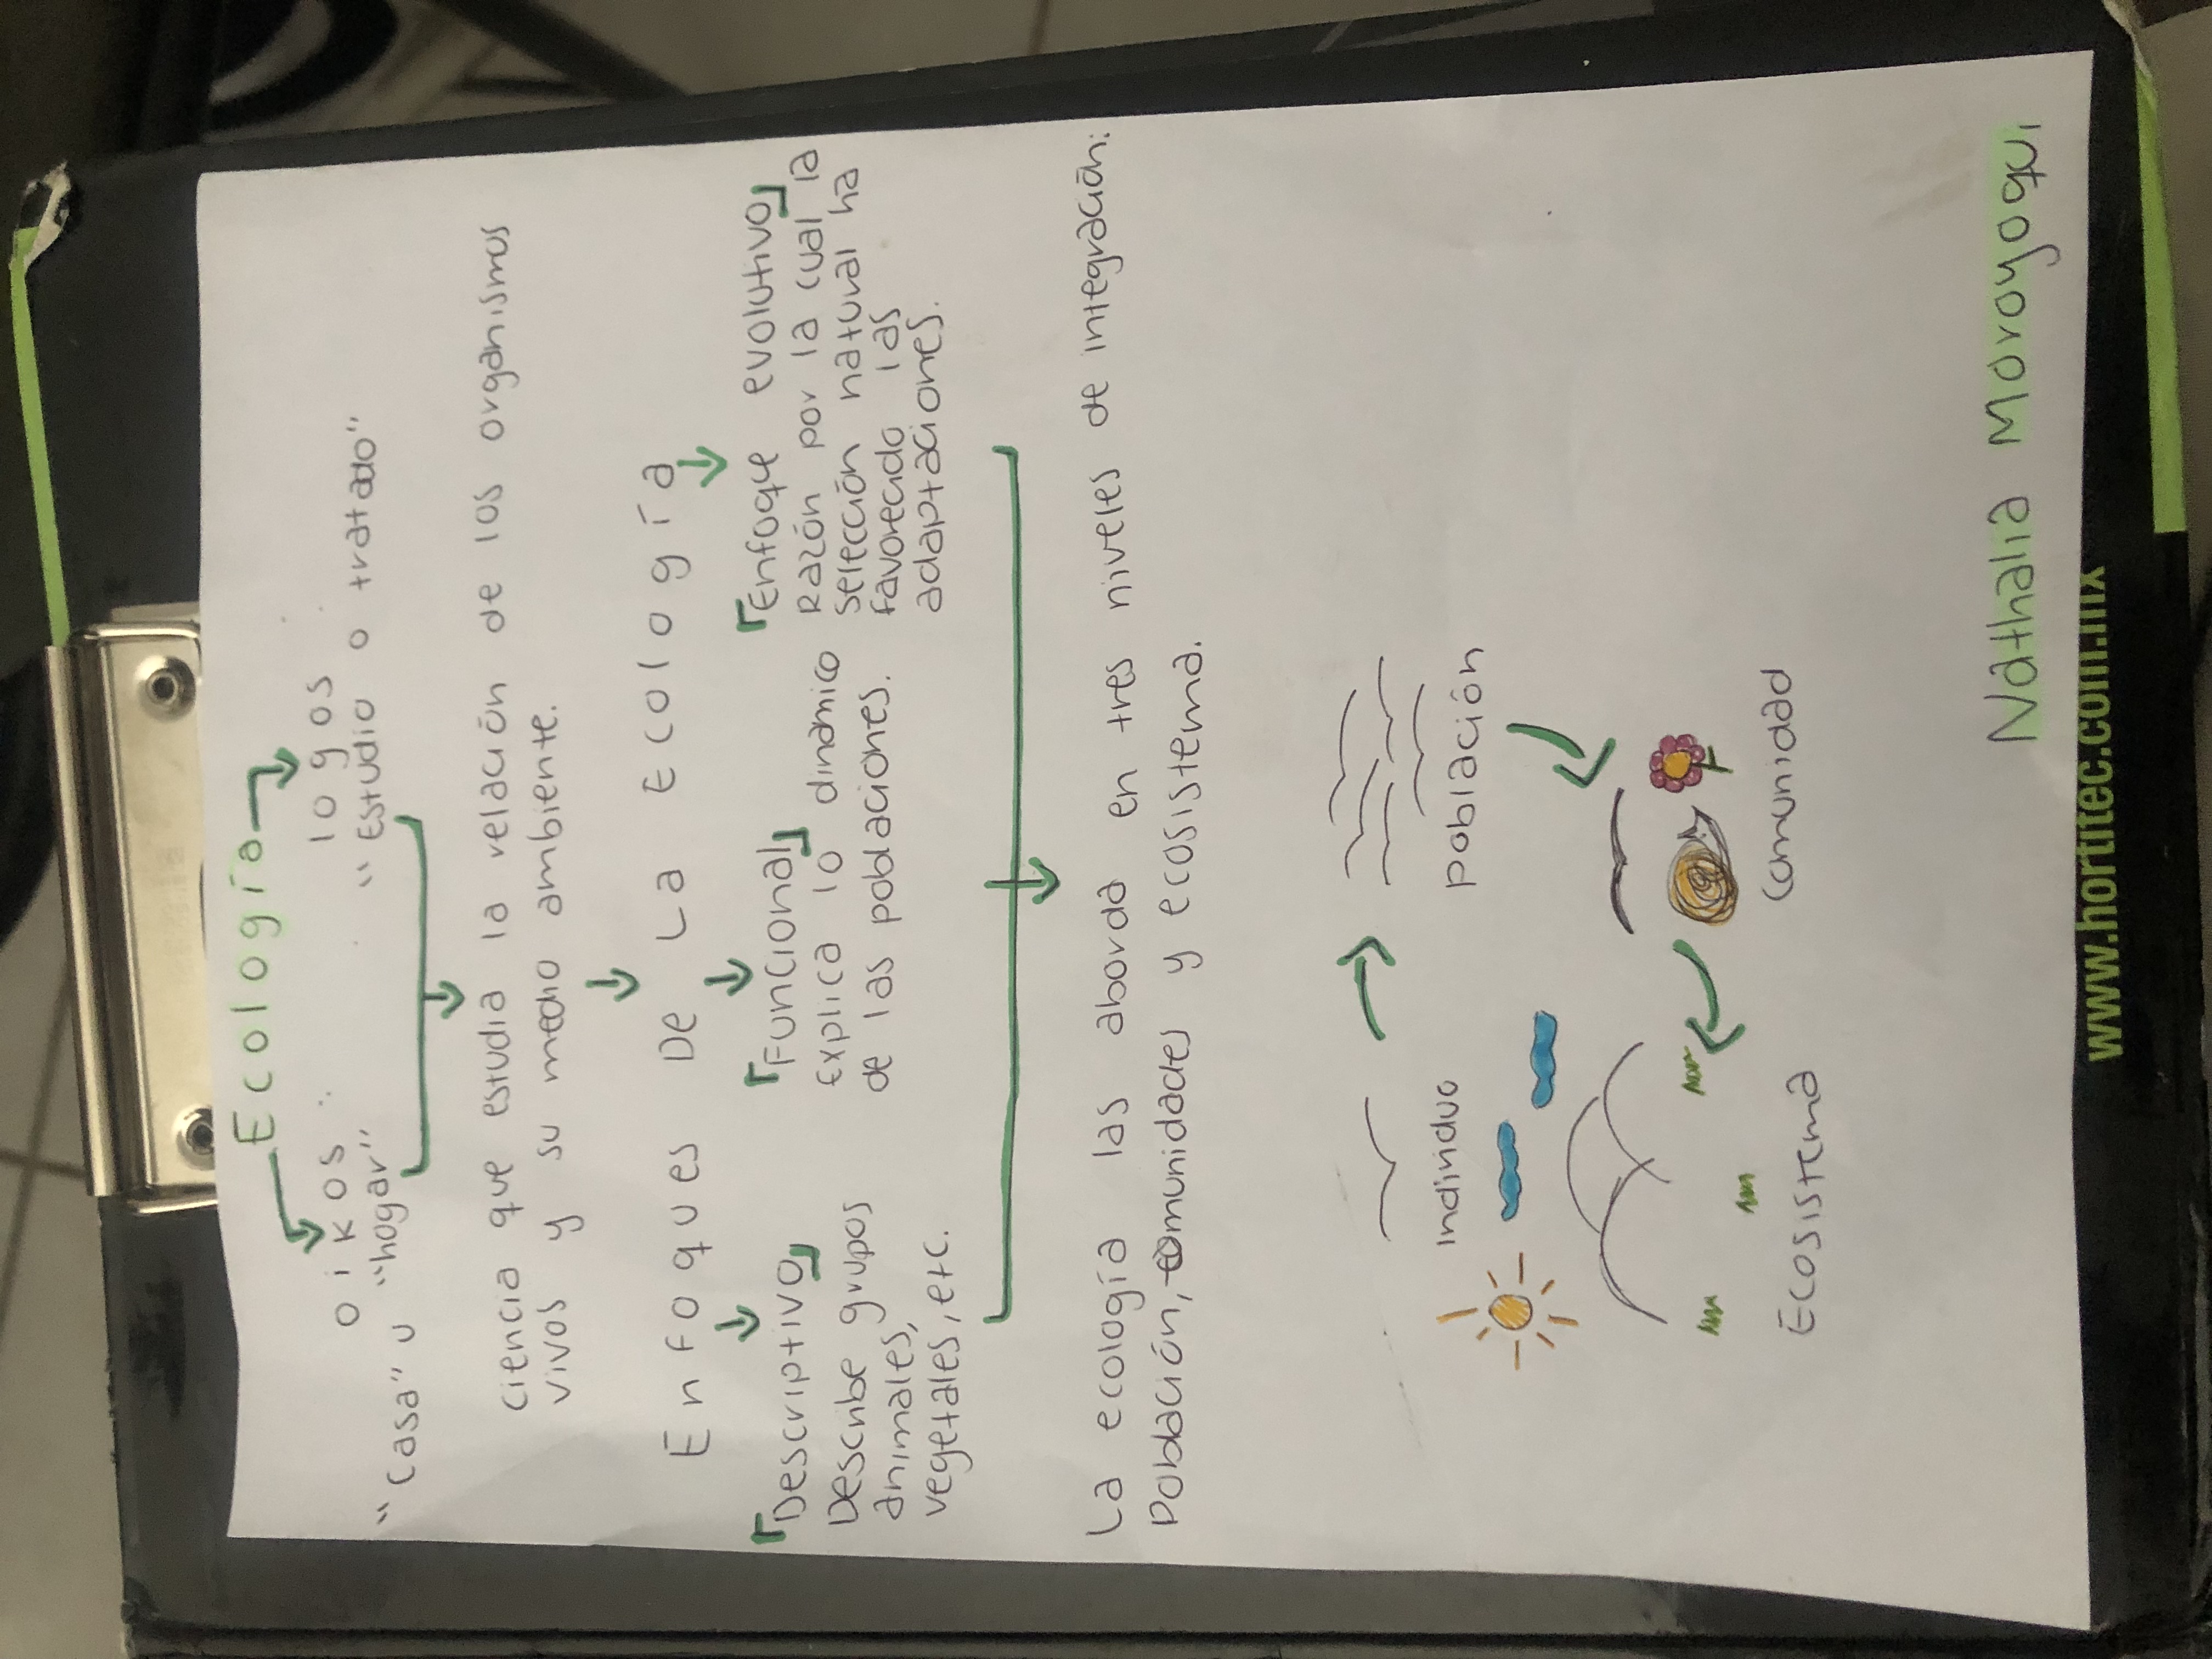 Ecología
oikos
"casa" u "hogar"
logos
"Estudio o tratado"
Ciencia que estudia la relación de los organismos
vivos y su medio ambiente.
Enfoques De La Ecología
Descriptivo
Describe grupos
animales,
vegetales, etc.
Funcional
Explica lo dinámico
de las poblaciones.
Enfoque evolutivo
Razón por la cual la
selección natural ha
favorecido las
adaptaciones.
La ecología las aborda en tres niveles de integración:
Población, comunidades y ecosistema.
Individuo
Población
Comunidad
Ecosistema
Nathalia Moroyoqui
www.hortitec.com.mx